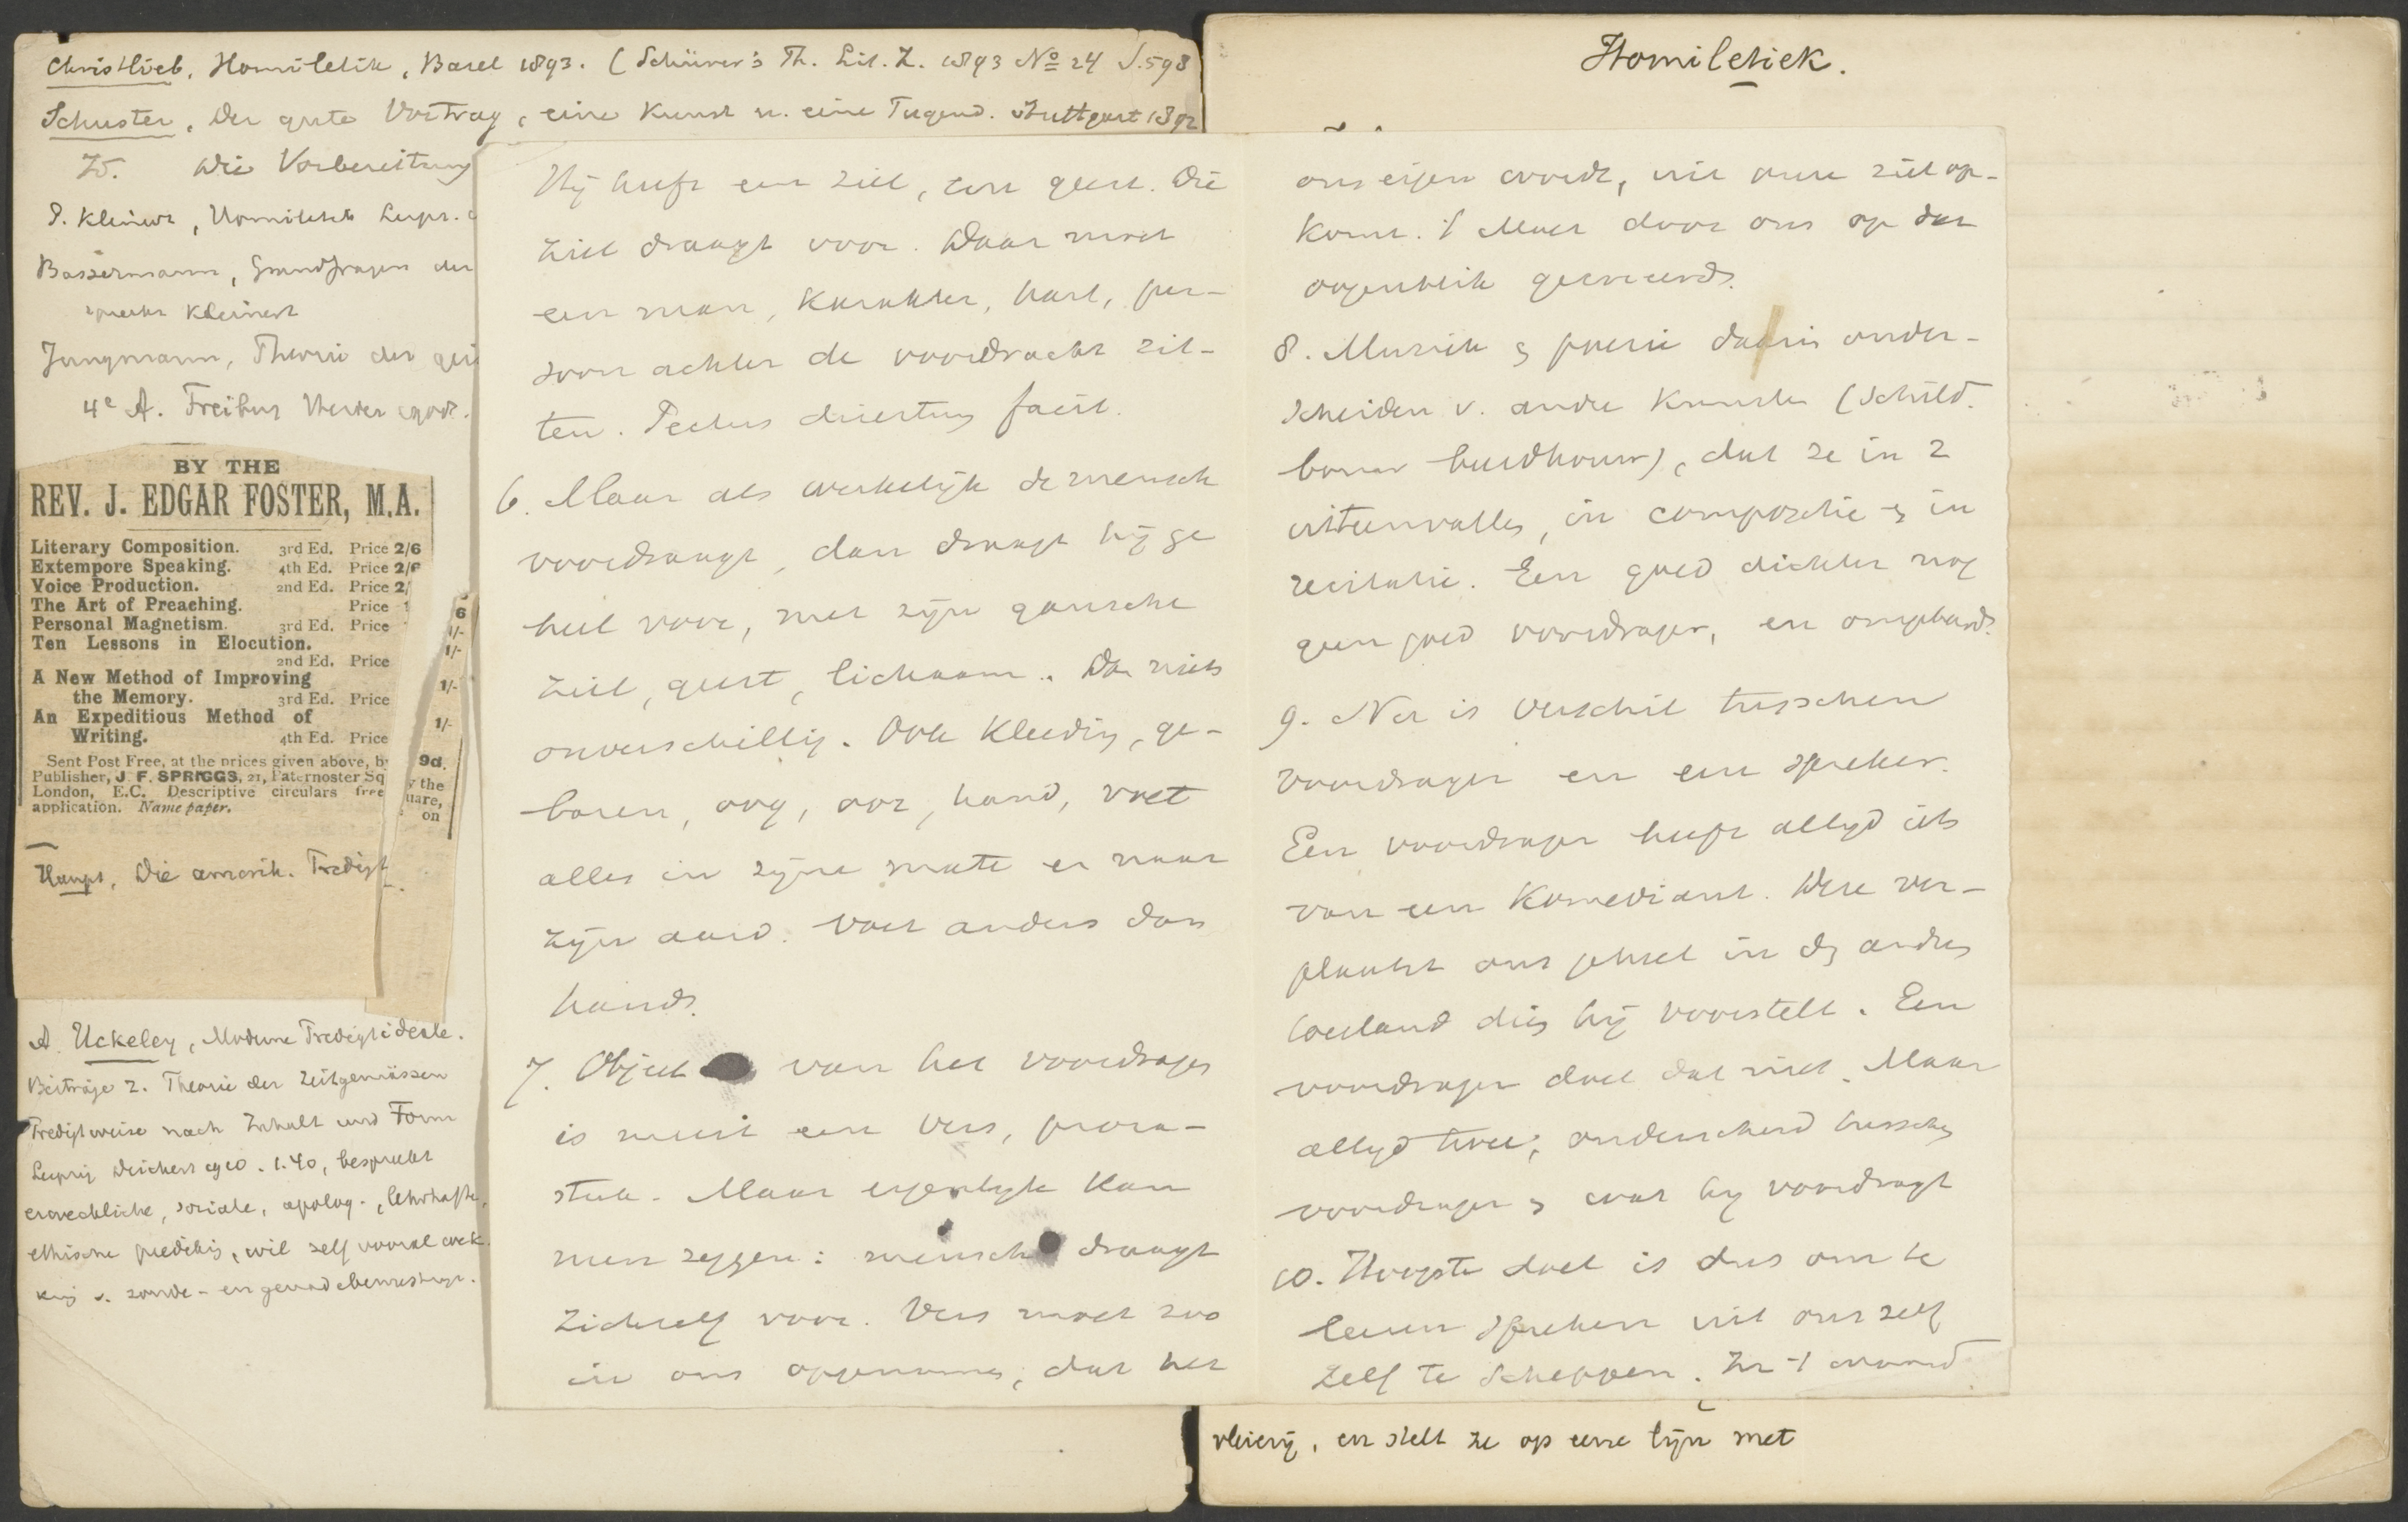 Christlieb, Homiletik, Basel 1893. (Schürer's Th. Lit. Z. 1893 No 24 S. 598
Schuster, Der gute Vortrag, eine Kunst u. eine Tugend. Stuttgart 1892
Id. Die Vorbereitung
P. Kleinert, Homiletik Leipz.
Bassermann, Grundfragen der
Kleinert
Jungmann, Theorie der gei
4e A. Freiburg Herder
BY THE
REV. J. EDGAR FOSTER, M.A.
Literary Composition. 3rd Ed. Price 2/6
Extempore Speaking. 4th Ed. Price 2/6
Voice Production. 2nd Ed. Price 2/
The Art of Preaching. Price 1
Personal Magnetism. 3rd Ed. Price
Ten Lessons in Elocution.
2nd Ed. Price
A New Method of Improving
the Memory. 3rd Ed. Price
An Expeditious Method of
Writing. 4th Ed. Price
Sent Post Free, at the prices given above, b
Publisher, J. F. SPRIGGS, 21, Paternoster Sq
London, E.C. Descriptive circulars free
application. Name paper.
6
1/-
1/-
1/-
1/-
9d.
y the
uare,
on
Haupt, Die amerik. Predigt
A. Uckeley, Moderne Predigtideale.
Beiträge z. Theorie der zeitgemässen
Predigtweise nach Inhalt und Form
Leipzig Deichert 1910. 1.40, bespreekt
erweckliche, soziale, apolog., lehrhafte,
ethische prediking, wil zelf vooral wek
king v. zonde- en
Hij heeft een ziel, een geest. Die
ziel draagt voor. Daar moet
een man, karakter, hart, per-
soon achter de voordracht zit-
ten. Pectus disertum facit.
6. Maar als werkelijk de mensch
voordraagt, dan draagt hij ge
heel voor, met zijn gansche
ziel, geest, lichaam. Dan niets
onverschillig. Ook kleeding, ge-
baren, oog, oor, hand, voet
alles in zijne mate en naar
zijn aard. Voet anders dan
hand.
7. Object van het voordragen
is meest een vers, proza-
stuk. Maar eigenlijk kan
men zeggen: mensch draagt
zichzelf voor. Vers moet zoo
in ons opgenomen, dat het
ons eigen wordt, uit onze ziel op-
komt. 't Moet door ons op dat
oogenblik gecreëerd.
8. Muziek en poezie daarin onder-
scheiden v. andre kunsten (schild.
bouw beeldhouw), dat ze in 2
uiteenvallen, in compositie en in
recitatie. Een goed dichter nog
geen goed voordrager, en omgekeerd.
9. Nu is verschil tusschen
voordrager en een spreker.
Een voordrager heeft altijd iets
van een komediant. Deze ver-
plaatst ons geheel in den andren
toestand dien hij voorstelt. Een
voordrager doet dat niet. Maar
altijd twee; onderscheid tusschen
voordrager en wat hij voordraagt
10. Hoogste doel is dus om te
leeren spreken uit ons zelf
zelf te scheppen. In 't woord
Homiletiek.
, en stelt ze op eene lijn met